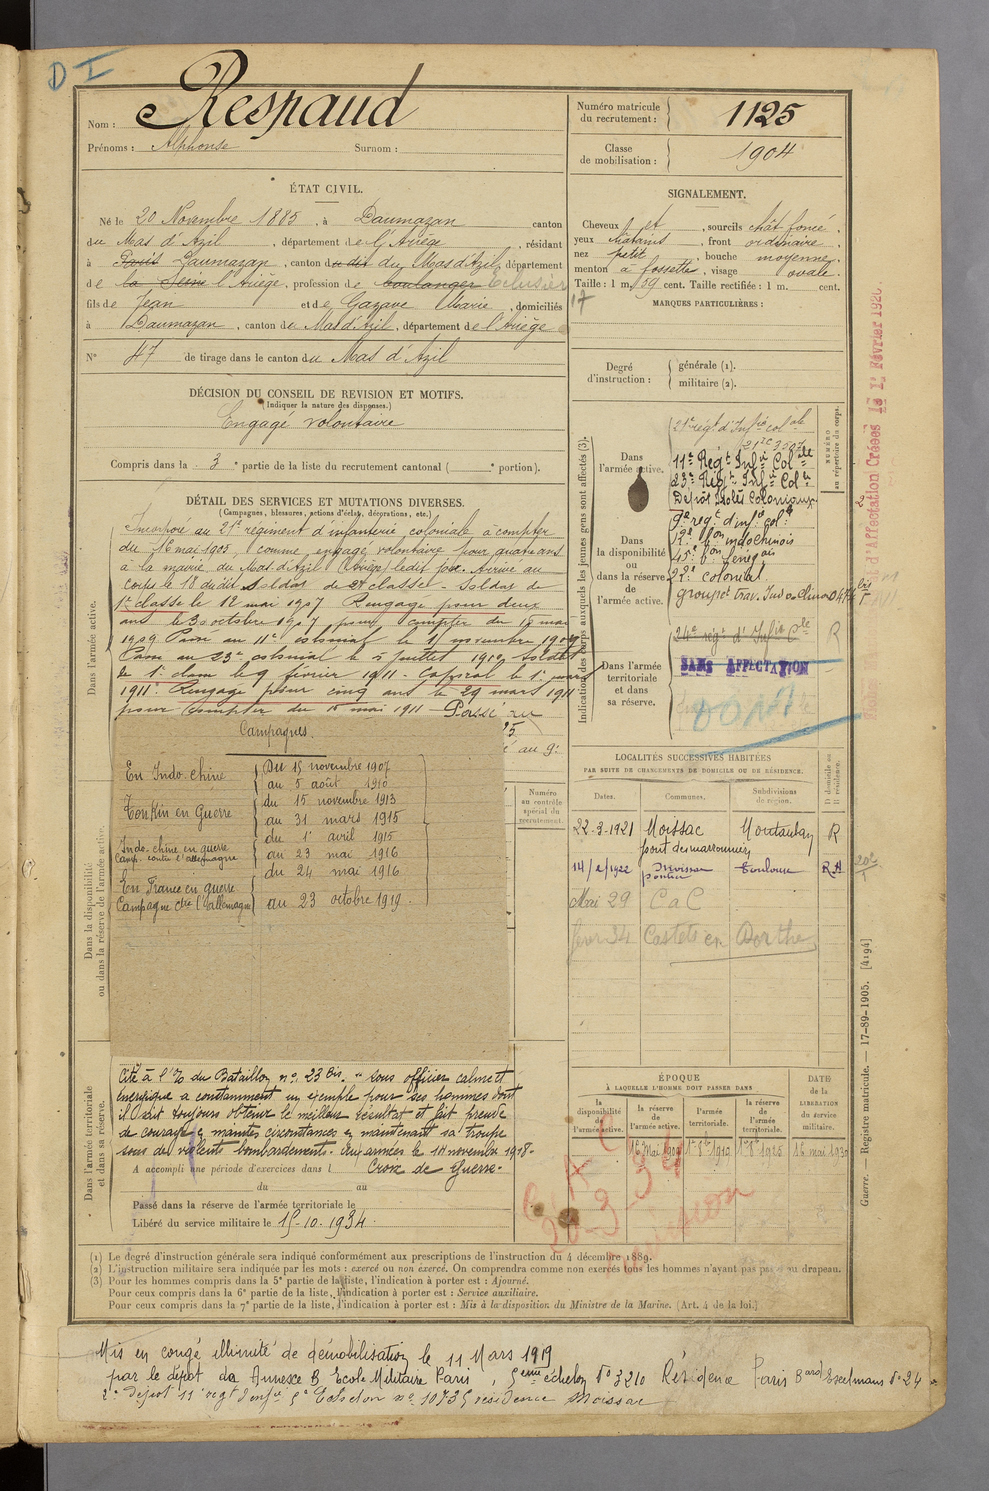 D I
Nom : Respaud
Prénoms : Alphonse Surnom :
Numéro matricule du recrutement : 1125
Classe de mobilisation : 1904
ÉTAT CIVIL.
Né le 20 Novembre 1885, à Daumazan canton
du Mas d'Azil, département de l'Ariège, résidant
à Paris Daumazan, canton du dit du Mas d'Azil, département
de la Seine l'Ariège, profession de boulanger Eclusier
fils de Jean et de Gazave Marie, domiciliés
à Daumazan, canton du Mas d'Azil, département de l'Ariège
N° 47 de tirage dans le canton du Mas d'Azil
SIGNALEMENT.
Cheveux et, sourcils chât foncé.
yeux chatains, front ordinaire.
nez petit, bouche moyenne.
menton à fossette, visage ovale.
Taille : 1 m. 69 cent. Taille rectifiée : 1 m. cent.
17
MARQUES PARTICULIÈRES :
DÉCISION DU CONSEIL DE REVISION ET MOTIFS.
(Indiquer la nature des dispenses.)
Engagé volontaire
Compris dans la 3e partie de la liste du recrutement cantonal ( e portion).
Degré d'instruction : générale (1).
militaire (2).
DÉTAIL DES SERVICES ET MUTATIONS DIVERSES.
(Campagnes, blessures, actions d'éclat, décorations, etc.)
Dans l'armée active.
Incorporé au 21e régiment d'infanterie coloniale à compter
du 16 mai 1905, comme engagé volontaire pour quatre ans
à la mairie du Mas d'Azil (Ariège) ledit jour. Arrivé au
corps le 18 dudit Soldat de 2e classe. Soldat de
1e classe le 12 mai 1907 Rengagé pour deux
ans le 30 octobre 1907 pour compter du 16 mai
1909 Passé au 11e colonial le 15 novembre 1907
Passé au 23e colonial le 5 juillet 1910, Soldat
de 1e classe le 9 février 1911. Caporal le 1e mars
1911. Rengagé pour cinq ans le 29 mars 1911
pour compter du 16 mai 1911 Passé au
au 9e
Campagnes.
En Indo-chine Du 15 novembre 1907
au 5 août 1910
Tonkin en Guerre du 15 novembre 1913
au 31 mars 1915
Indo-chine en guerre du 1e avril 1915
Camp. contre l'allemagne au 23 mai 1916
En France en guerre du 24 mai 1916
Campagne ctre l'allemagne au 23 octobre 1919
Dans la disponibilité ou dans la réserve de l'armée active.
Dans l'armée territoriale et dans sa réserve.
Cité à l'% du Bataillon n° 23 bis. "Sous officier calme et
énergique a constamment un exemple pour ses hommes dont
il sait toujours obtenir le meilleur résultat et fait preuve
de courage en maintes circonstances en maintenant sa troupe
sous de violents bombardements. Aux armées le 14 novembre 1918.
A accompli une période d'exercices dans l Croix de Guerre.
du au
Passé dans la réserve de l'armée territoriale le
Libéré du service militaire le 15-10-1934.
Indication des corps auxquels les jeunes gens sont affectés (3).
NUMÉRO au répertoire du corps.
Dans l'armée active.
21e regt d'Infie colale
11e Regt Infie Colale
23e Regt Infie Cole
Dépôt Isolés Coloniaux
Dans la disponibilité ou dans la réserve de l'armée active.
9e regt d'inf col
12e bon indochinois
45e bon Sénégais
22e colonial
groupet trav. Indo-Chinois
Dans l'armée territoriale et dans sa réserve.
24e regt d'Infie Cle R
SANS AFFECTATION
LOCALITÉS SUCCESSIVES HABITÉES
PAR SUITE DE CHANGEMENTS DE DOMICILE OU DE RÉSIDENCE.
Numéro au contrôle spécial du recrutement.
Dates. Communes. Subdivisions de région. D domicile ou R résidence.
22-3-1921 Moissac Montauban R
pont des marronniers
14/2/1922 Toulouse R.A
Mai 29 C a C
fevr 34 Castets en Dorthe
ÉPOQUE
À LAQUELLE L'HOMME DOIT PASSER DANS
la disponibilité de l'armée active. la réserve de l'armée active. l'armée territoriale. la réserve de l'armée territoriale.
DATE de la LIBÉRATION du service militaire.
16 mai 1909 1er 8bre 1919 1er 8bre 1925 16 mai 1930
20-3-34
(1) Le degré d'instruction générale sera indiqué conformément aux prescriptions de l'instruction du 4 décembre 1889.
(2) L'instruction militaire sera indiquée par les mots : exercé ou non exercé. On comprendra comme non exercés tous les hommes n'ayant pas passé au drapeau.
(3) Pour les hommes compris dans la 5e partie de la liste, l'indication à porter est : Ajourné.
Pour ceux compris dans la 6e partie de la liste, l'indication à porter est : Service auxiliaire.
Pour ceux compris dans la 7e partie de la liste, l'indication à porter est : Mis à la disposition du Ministre de la Marine. (Art. 4 de la loi.)
Guerre. — Registre matricule. — 17-89-1905. [4194]
Mis en congé illimité de démobilisation le 11 Mars 1919
par le dépôt da Annexe B Ecole Militaire Paris, 5ème échelon n° 3210 Résidence Paris Bard Exelmans n° 24
Dépôt 11e regt d'infie 5e Echelon n° 10735 résidence Moissac